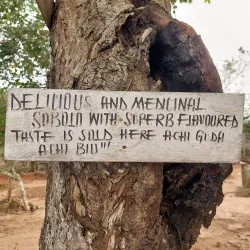 DELICIOUS AND MENLINAL
SOBOLO WITH SUPERB FLAVOURED
TASTE IS SOLD HERE ACHI GIDA
ACHI BIO"!!